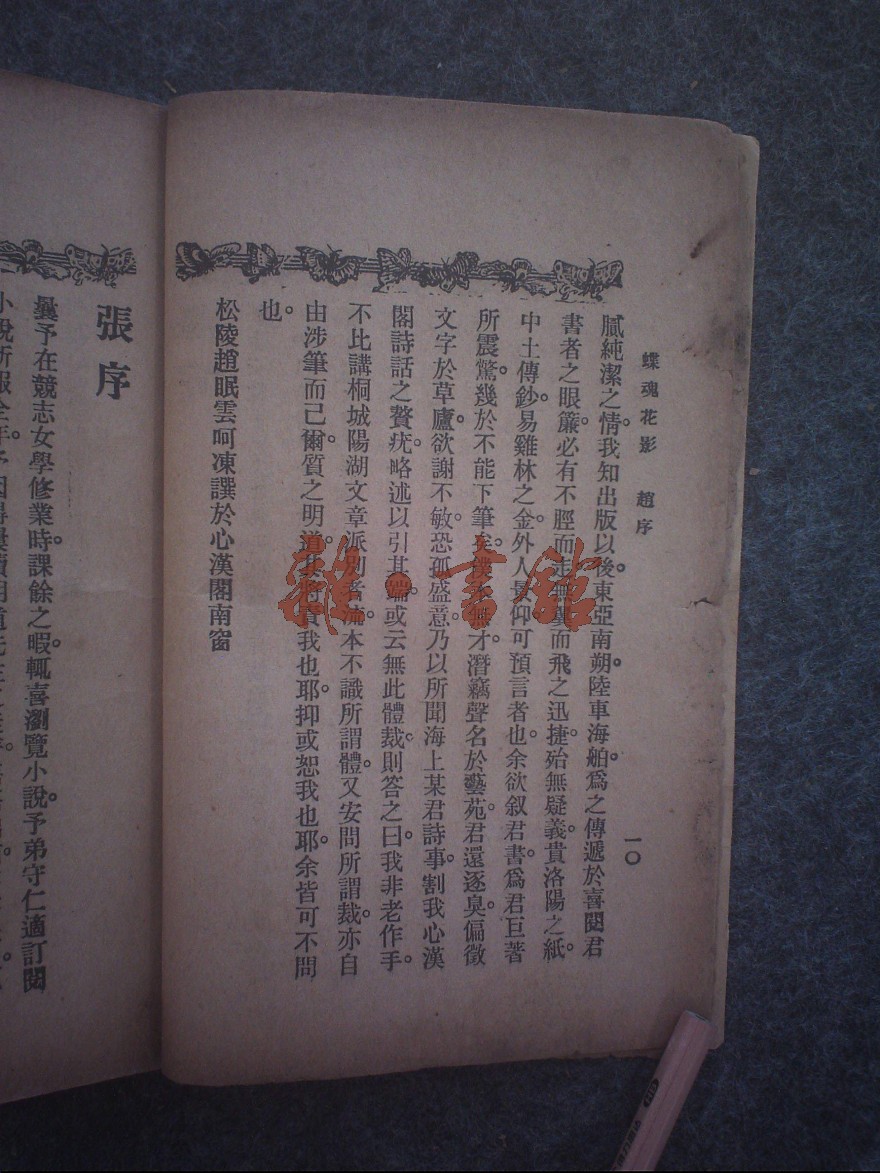 蝶魂花影　趙序
一〇
膩純潔之情。我知出版以後。東亞南朔。陸車海舶。爲之傳遞於喜閱君
書者之眼簾。必有不脛而走無翼而飛之迅捷。殆無疑義。貴洛陽之紙。
中土傳鈔。易雞林之金。外人景仰。可預言者也。余欲叙君書。爲君巨著
所震驚。幾於不能下筆矣。僕本無才。潛竊聲名於藝苑。君還逐臭。偏徵
文字於草廬。欲謝不敏。恐孤盛意。乃以所聞海上某君詩事。割我心漢
閣詩話之贅疣。略述以引其端。或云無此體裁。則答之曰。我非老作手。
不比講桐城陽湖文章派別者流。本不識所謂體。又安問所謂裁。亦自
由涉筆而已爾。質之明道。其將責我也耶。抑或恕我也耶。余皆可不問
也。
松陵趙眠雲呵凍譔於心漢閣南窗
張序
曩予在競志女學修業時。課餘之暇。輒喜瀏覽小說。予弟守仁適訂閱
小說新報全年。予因得
雜·書館